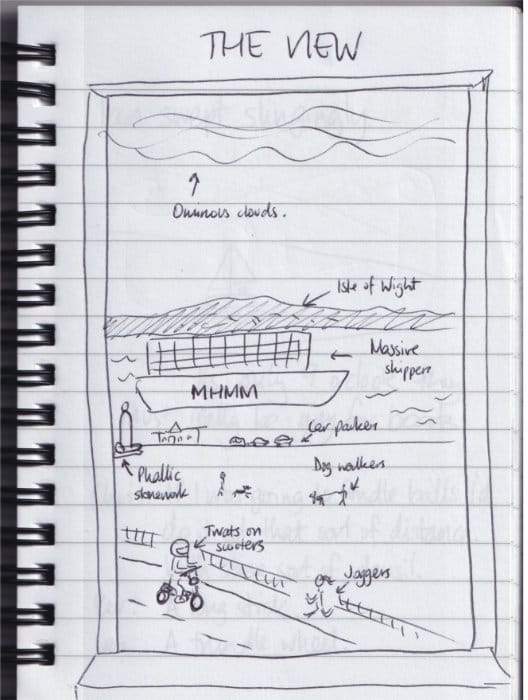 THE VIEW
Ominous clouds.
Isle of Wight
Massive
shippers
MHMM
Car parkers
Phallic
stonework
Dog walkers
Twats on
scooters
Joggers